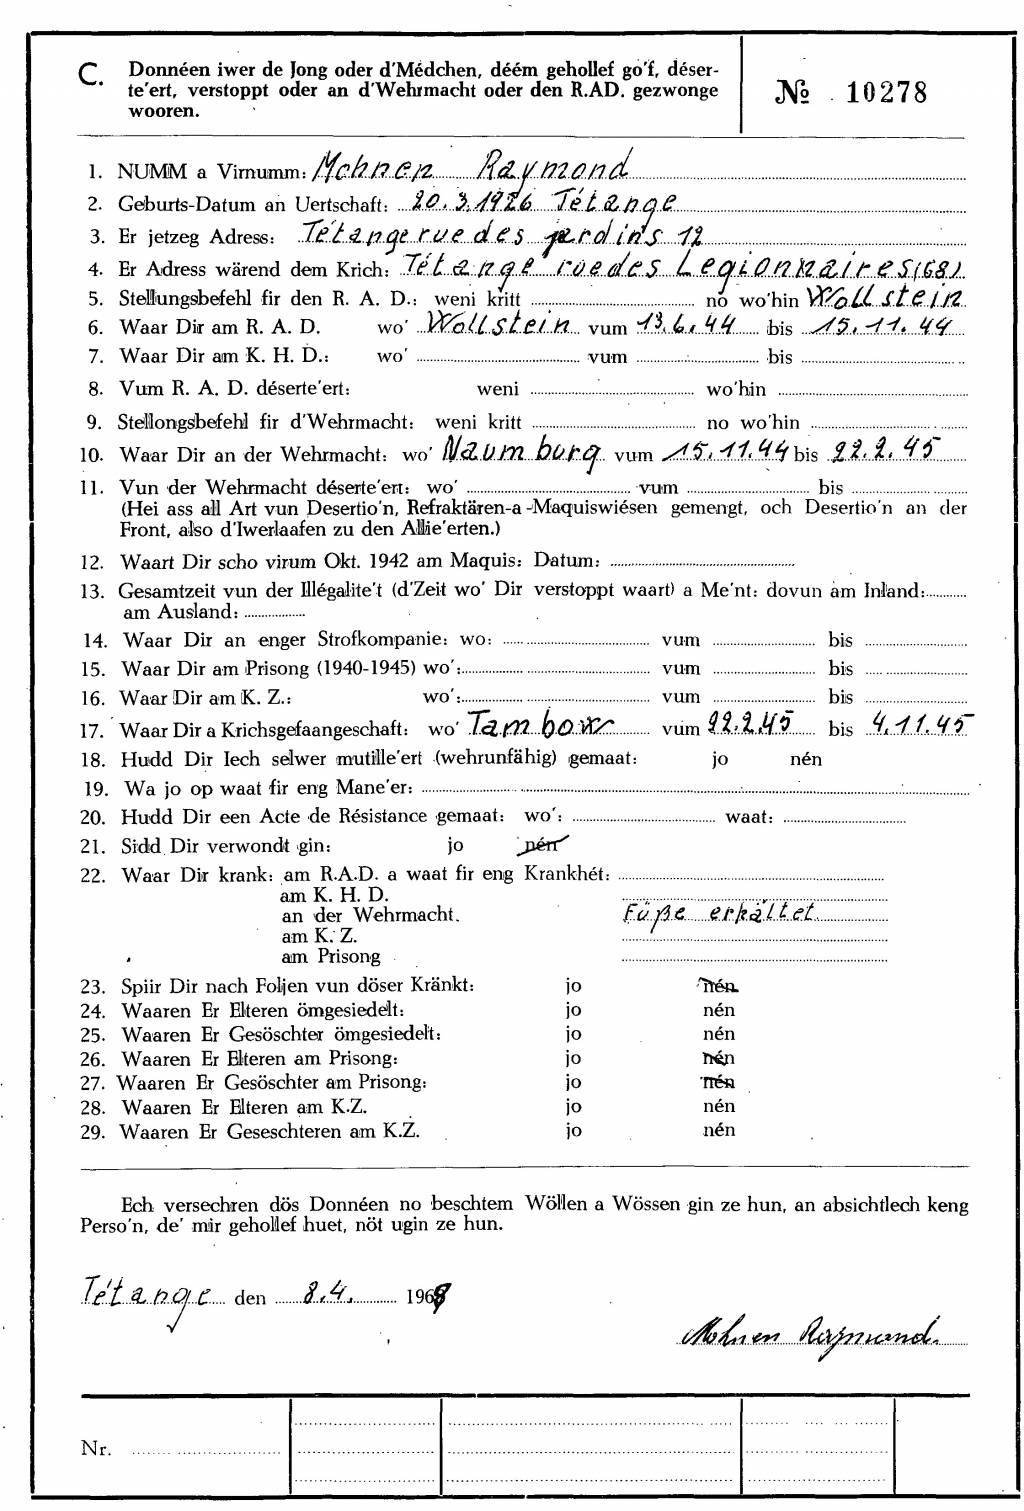 C. Donnéen iwer de Jong oder d'Médchen, déém gehollef go'f, déser-
te'ert, verstoppt oder an d'Wehrmacht oder den R.AD. gezwonge
wooren.
№ 10278
1. NUMM a Virnumm: Mohnen Raymond
2. Geburts-Datum an Uertschaft: 20.3.1926 Tétange
3. Er jetzeg Adress: Tétange rue des jardins 12
4. Er Adress wärend dem Krich: Tétange rue des Legionnaires (68)
5. Stellungsbefehl fir den R. A. D.: weni kritt no wo'hin Wollstein
6. Waar Dir am R. A. D. wo' Wollstein vum 13.6.44 bis 15.11.44
7. Waar Dir am K. H. D.: wo' vum bis
8. Vum R. A. D. déserte'ert: weni wo'hin
9. Stellongsbefehl fir d'Wehrmacht: weni kritt no wo'hin
10. Waar Dir an der Wehrmacht: wo' Naumburg vum 15.11.44 bis 22.2.45
11. Vun der Wehrmacht déserte'ert: wo' vum bis
(Hei ass all Art vun Desertio'n, Refraktären-a-Maquiswiésen gemengt, och Desertio'n an der
Front, also d'Iwerlaafen zu den Allie'erten.)
12. Waart Dir scho virum Okt. 1942 am Maquis: Datum:
13. Gesamtzeit vun der Illégalite't (d'Zeit wo' Dir verstoppt waart) a Me'nt: dovun am Inland:
am Ausland:
14. Waar Dir an enger Strofkompanie: wo: vum bis
15. Waar Dir am Prisong (1940-1945) wo': vum bis
16. Waar Dir am K. Z.: wo': vum bis
17. Waar Dir a Krichsgefaangeschaft: wo' Tambow vum 22.2.45 bis 4.11.45
18. Hudd Dir Iech selwer mutille'ert (wehrunfähig) gemaat: jo nén
19. Wa jo op waat fir eng Mane'er:
20. Hudd Dir een Acte de Résistance gemaat: wo': waat:
21. Sidd Dir verwondt gin: jo nén
22. Waar Dir krank: am R.A.D. a waat fir eng Krankhét:
am K. H. D.
an der Wehrmacht. Füße erkältet
am K. Z.
am Prisong
23. Spiir Dir nach Foljen vun döser Kränkt: jo nén
24. Waaren Er Elteren ömgesiedelt: jo nén
25. Waaren Er Gesöschter ömgesiedelt: jo nén
26. Waaren Er Elteren am Prisong: jo nén
27. Waaren Er Gesöschter am Prisong: jo nén
28. Waaren Er Elteren am K.Z. jo nén
29. Waaren Er Geseschteren am K.Z. jo nén
Ech versechren dös Donnéen no beschtem Wöllen a Wössen gin ze hun, an absichtlech keng
Perso'n, de' mir gehollef huet, nöt ugin ze hun.
Tétange den 8.4. 1968
Mohnen Raymond.
Nr.